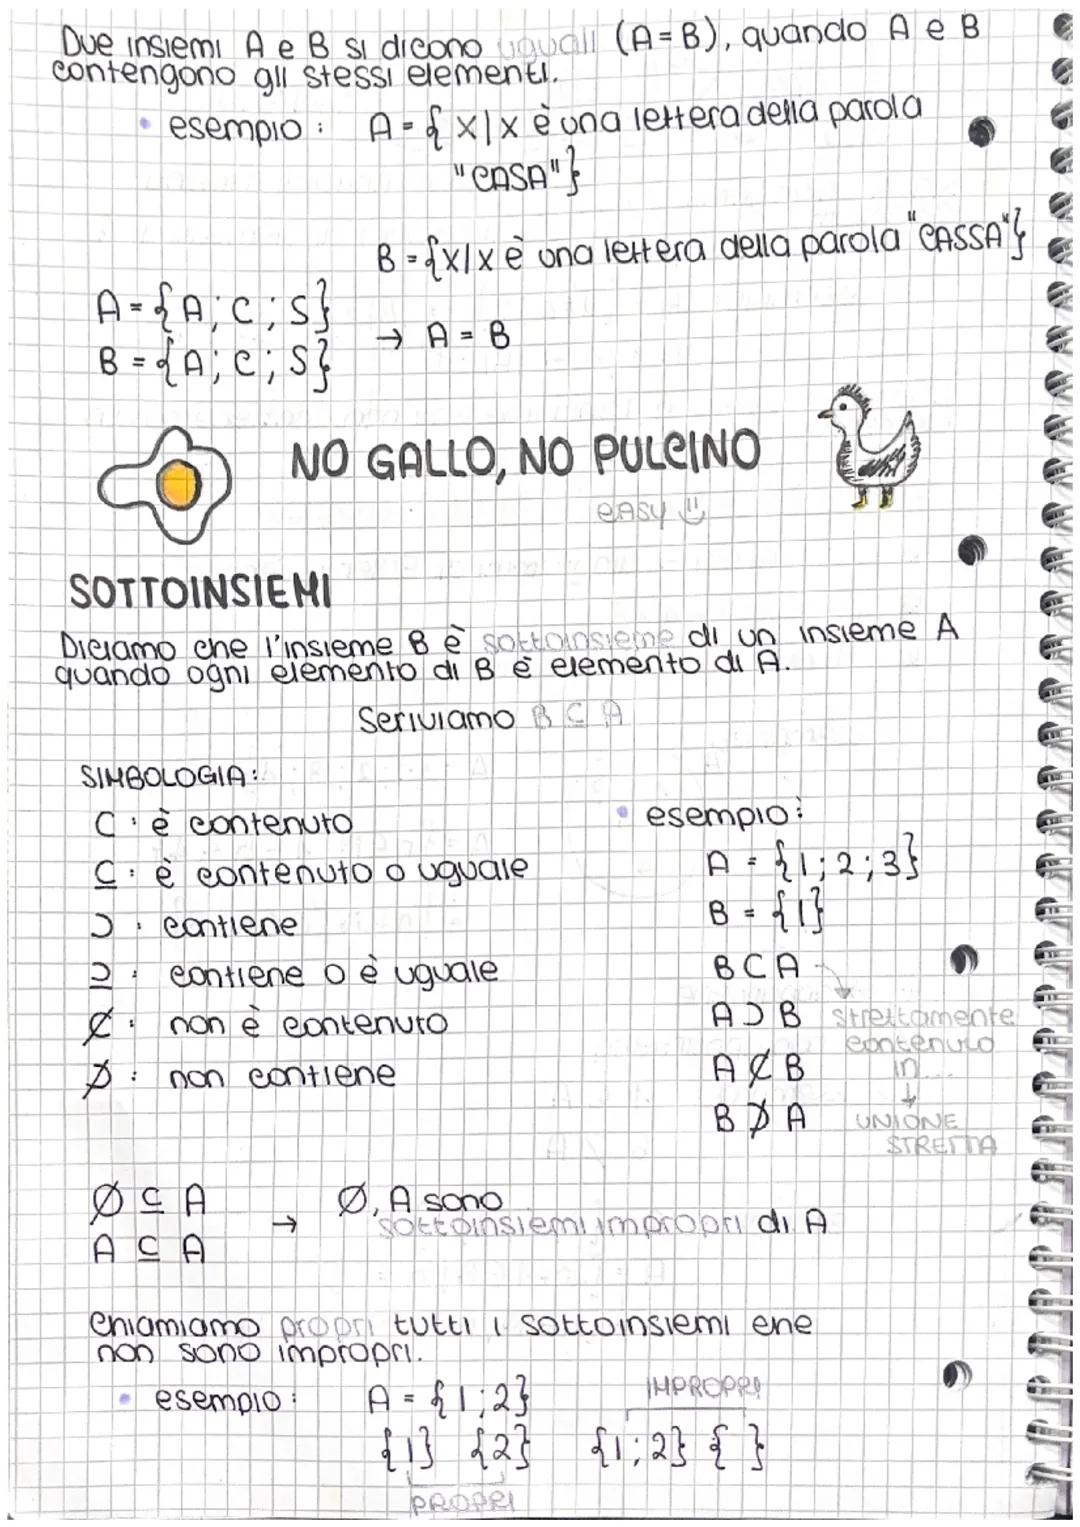 Due insiemi A e B si dicono uguali (A=B), quando A e B
contengono gli stessi elementi.
• esempio: A = { x | x è una lettera della parola
"CASA"}
B = {x | x è una lettera della parola "CASSA"}
A = {A; C; S}
B = {A; C; S}
→ A = B
NO GALLO, NO PULCINO
easy
SOTTOINSIEMI
Diciamo che l'insieme B è sottoinsieme di un insieme A
quando ogni elemento di B è elemento di A.
Scriviamo B ⊆ A
SIMBOLOGIA:
⊂: è contenuto
⊆: è contenuto o uguale
⊃: contiene
⊇: contiene o è uguale
⊄: non è contenuto
⊅: non contiene
• esempio:
A = {1; 2; 3}
B = {1}
B ⊂ A
A ⊃ B
A ⊄ B
B ⊅ A
strettamente
contenuto
in...
↓
UNIONE
STRETTA
Ø ⊆ A
A ⊆ A
→ Ø, A sono
sottoinsiemi impropri di A
Chiamiamo propri tutti i sottoinsiemi che
non sono impropri.
• esempio: A = {1; 2}
IMPROPRI
{1} {2} {1; 2} { }
PROPRI